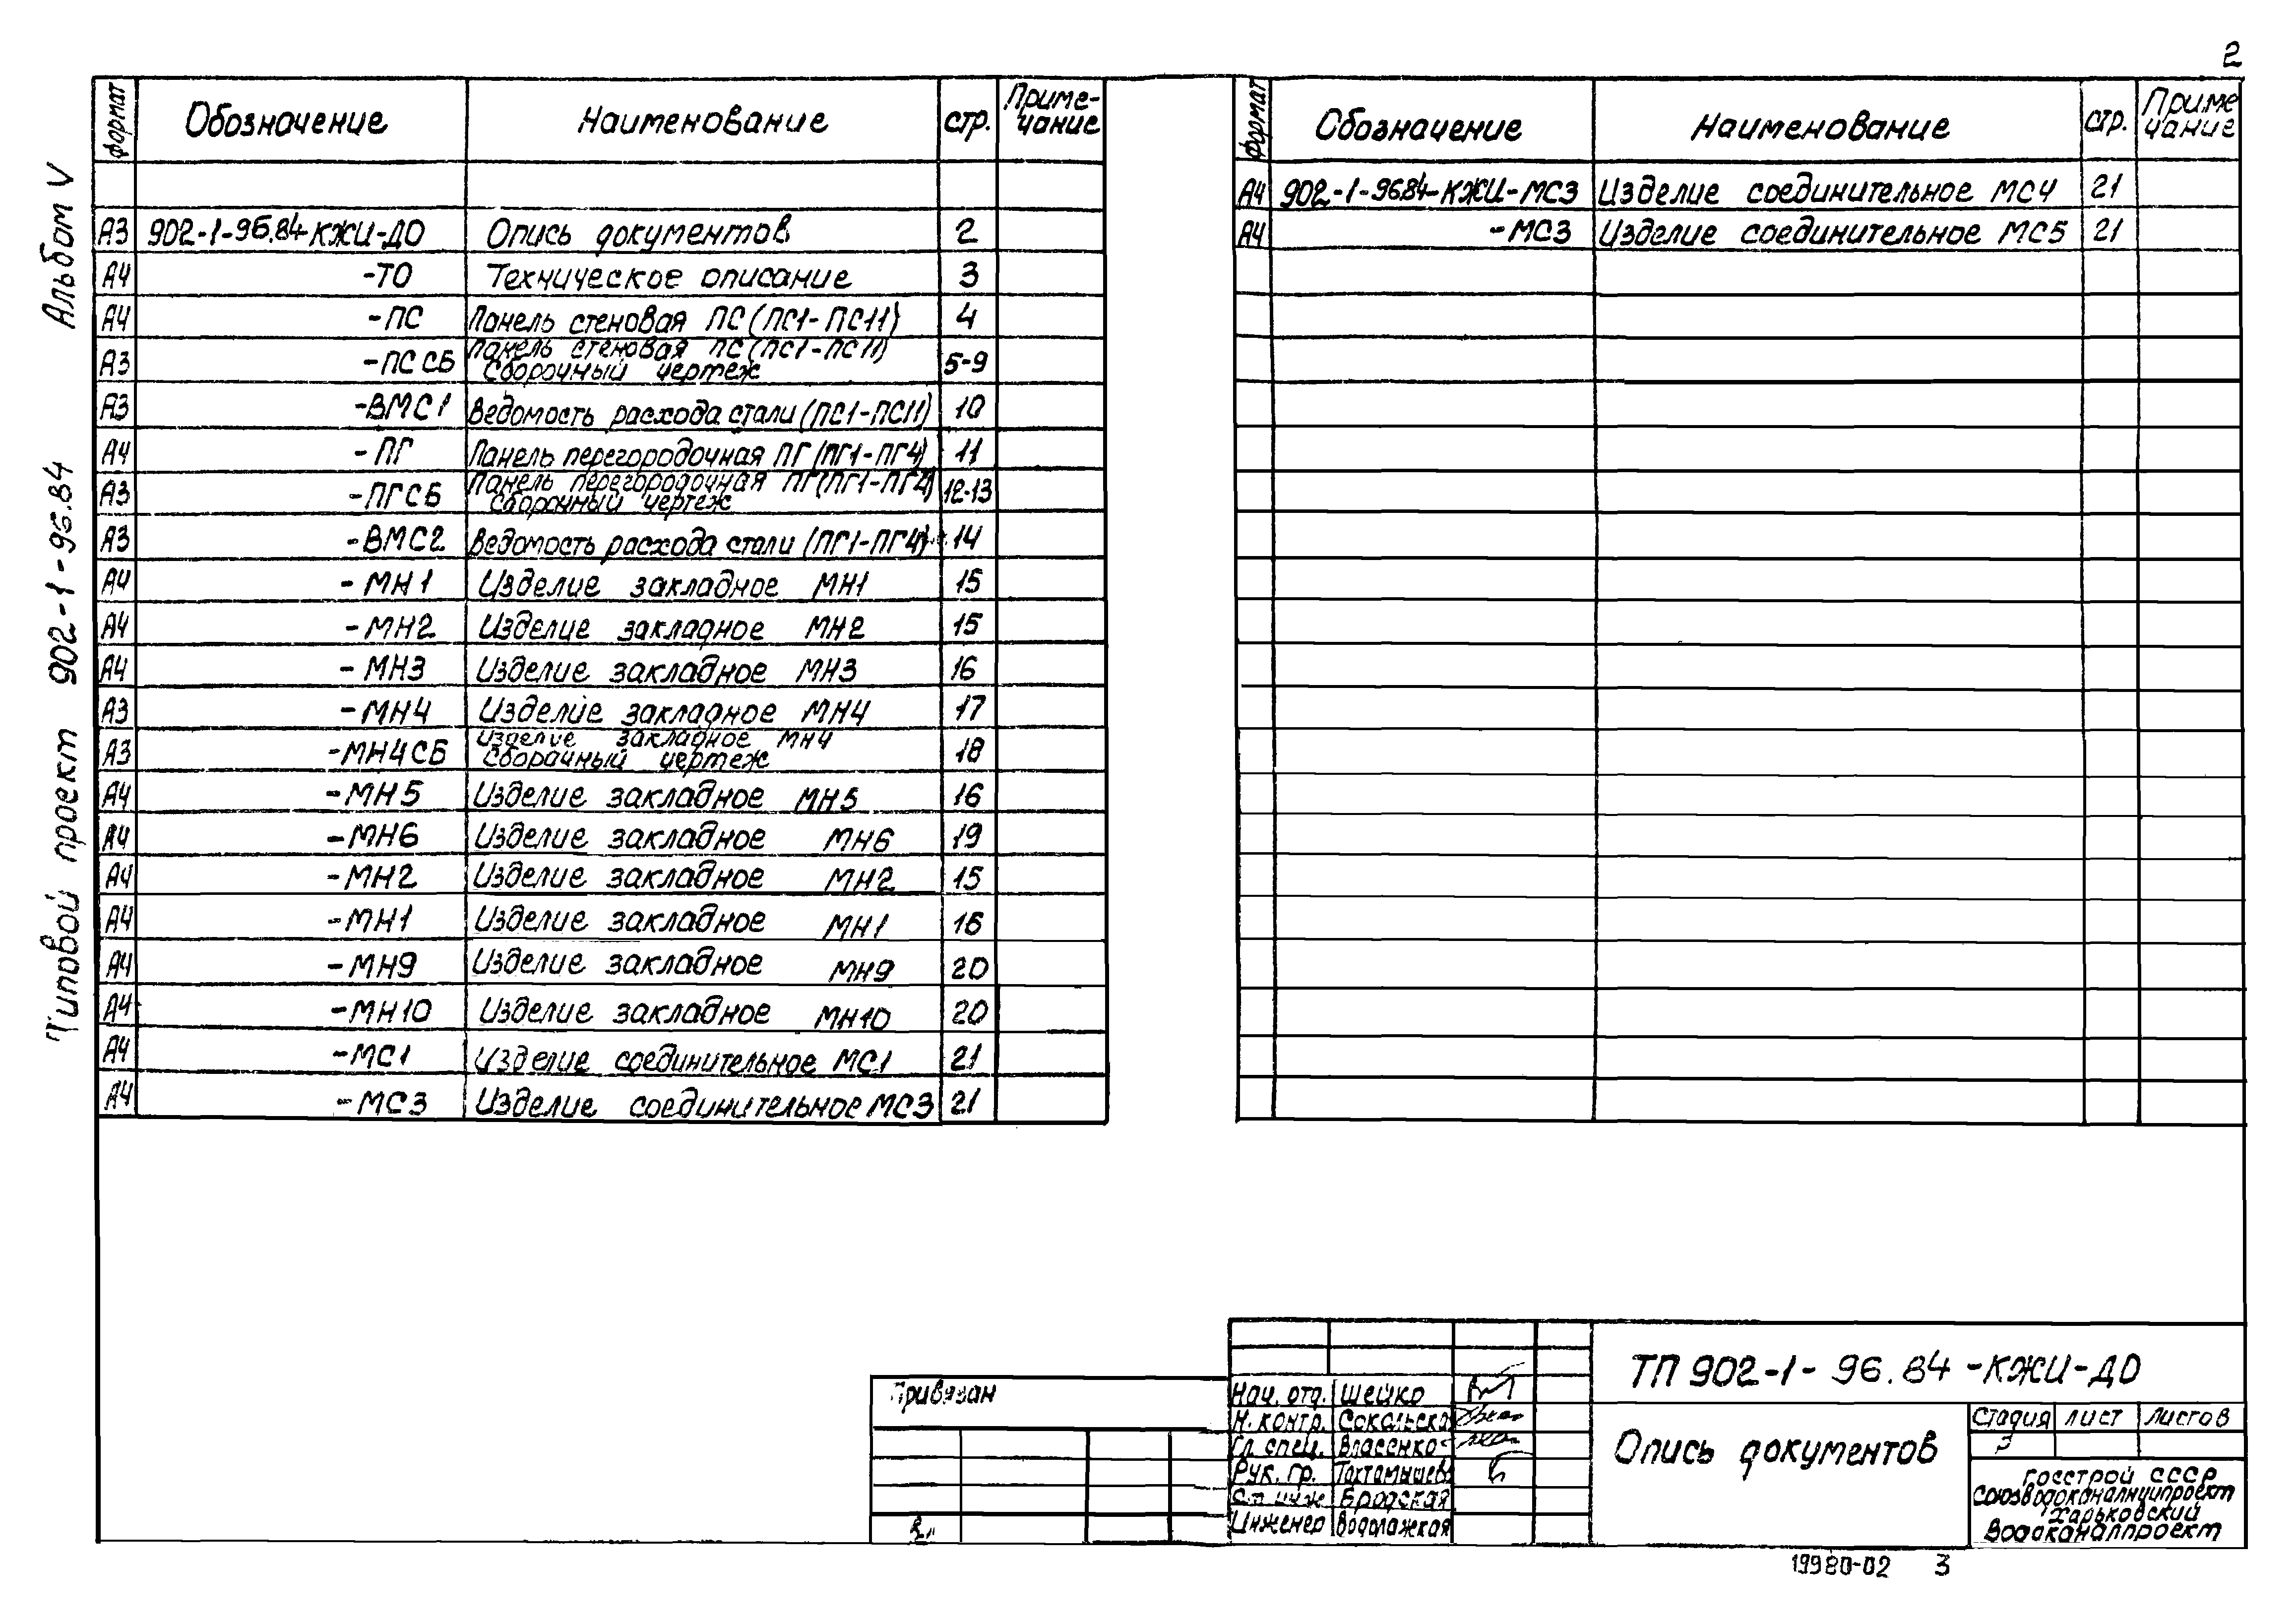 2
Альбом V
Типовой проект 902-1-96.84
формат Обозначение Наименование стр. Приме-
чание
А3 902-1-96.84-КЖИ-ДО Опись документов 2
А4 -ТО Техническое описание 3
А4 -ПС Панель стеновая ПС (ПС1-ПС11) 4
А3 -ПС СБ Панель стеновая ПС (ПС1-ПС11)
Сборочный чертеж 5-9
А3 -ВМС1 Ведомость расхода стали (ПС1-ПС11) 10
А4 -ПГ Панель перегородочная ПГ (ПГ1-ПГ4) 11
А3 -ПГСБ Панель перегородочная ПГ (ПГ1-ПГ4)
Сборочный чертеж 12-13
А3 -ВМС2 Ведомость расхода стали (ПГ1-ПГ4) 14
А4 -МН1 Изделие закладное МН1 15
А4 -МН2 Изделие закладное МН2 15
А4 -МН3 Изделие закладное МН3 16
А3 -МН4 Изделие закладное МН4 17
А3 -МН4СБ Изделие закладное МН4
Сборочный чертеж 18
А4 -МН5 Изделие закладное МН5 16
А4 -МН6 Изделие закладное МН6 19
А4 -МН2 Изделие закладное МН2 15
А4 -МН1 Изделие закладное МН1 16
А4 -МН9 Изделие закладное МН9 20
А4 -МН10 Изделие закладное МН10 20
А4 -МС1 Изделие соединительное МС1 21
А4 -МС3 Изделие соединительное МС3 21
формат Обозначение Наименование стр. Приме
чание
А4 902-1-9684-КЖИ-МС3 Изделие соединительное МС4 21
А4 -МС3 Изделие соединительное МС5 21
Привязан
Нач. отд. Шейко
Н. контр. Сокольска
Гл. спец. Власенко
Рук. гр. Тахтамышев
Ст инж Бродская
Инженер Водолажская
ТП 902-1-96.84-КЖИ-ДО
Опись документов
Стадия лист листов
Госстрой СССР
Союзводоканалниипроект
Харьковский
Водоканалпроект
19980-02 3